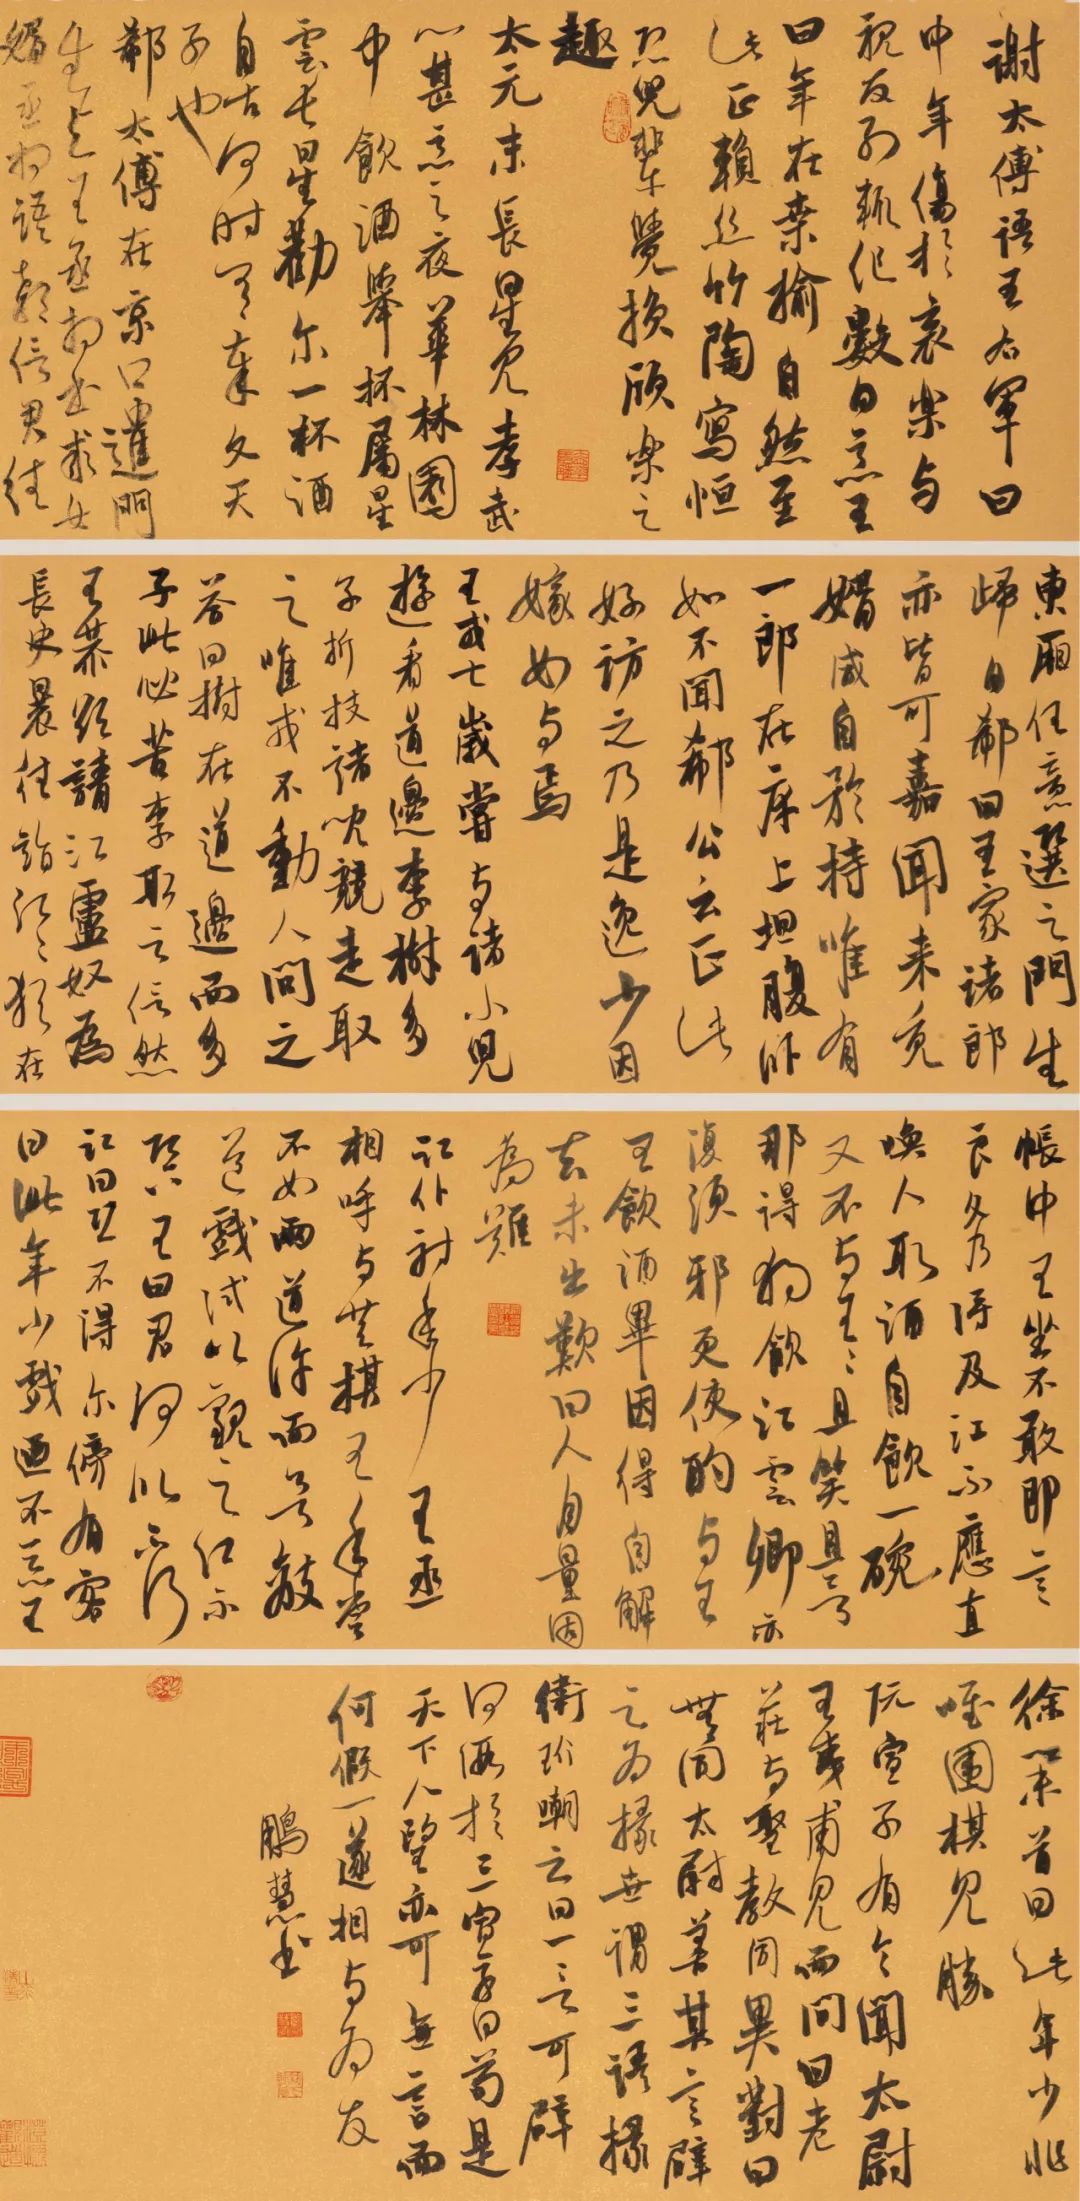 謝太傅語王右軍曰
中年傷於哀樂与
親友別輒作數日惡王
曰年在桑榆自然至
此正賴絲竹陶寫恒
恐兒輩覺損欣樂之
趣
太元末長星見孝武
心甚惡之夜華林園
中飲酒舉杯屬星
雲長星勸尔一杯酒
自古何时有萬歲天
子也
郗太傅在京口遣門
生与王丞相書求女
婿丞相語郗信君往
東廂任意選之門生
歸白郗曰王家諸郎
亦皆可嘉聞来覓
婿咸自矜持唯有
一郎在床上坦腹卧
如不聞郗公云正此
好訪之乃是逸少因
嫁女与焉
王戎七歲嘗与諸小兒
遊看道邊李樹多
子折枝諸兒競走取
之唯戎不動人問之
答曰樹在道邊而多
子此必苦李取之信然
王恭欲請江盧奴為
長史晨往詣江江猶在
帳中王坐不敢即言
良久乃得及江不應直
喚人取酒自飲一碗
又不与王王且笑且言
那得獨飲江雲卿亦
復須邪更使酌与王
王飲酒畢因得自解
去未出歎曰人自量固
為難
江仆射年少王丞
相呼与共棋王手嘗
不如兩道許而欲敵
道戲試以觀之江不
即下王曰君何以不行
江曰恐不得尔傍有客
曰此年少戲迺不惡王
徐舉首曰此年少非
唯圍棋見勝
阮宣子有令聞太尉
王夷甫見而問曰老
莊与聖教同異對曰
將無同太尉善其言辟
之为掾世謂三語掾
衛玠嘲之曰一言可辟
何假於三宣子曰苟是
天下人望亦可無言而
辟何假一遂相与为友
鵬慧书